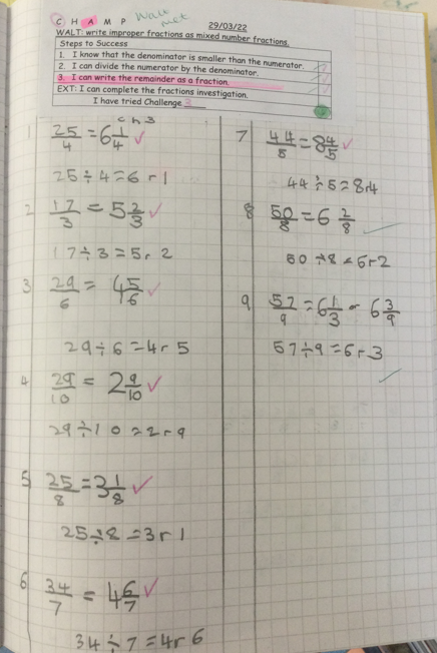 C H A M P Walt met
29/03/22
WALT: write improper fractions as mixed number fractions.
Steps to Success
1. I know that the denominator is smaller than the numerator.
2. I can divide the numerator by the denominator.
3. I can write the remainder as a fraction.
EXT: I can complete the fractions investigation.
I have tried Challenge 3
ch3
1 25/4 = 6 1/4 ✓
25 ÷ 4 = 6 r 1
2 17/3 = 5 2/3 ✓
17 ÷ 3 = 5 r 2
3 29/6 = 4 5/6 ✓
29 ÷ 6 = 4 r 5
4 29/10 = 2 9/10 ✓
29 ÷ 10 = 2 r 9
5 25/8 = 3 1/8 ✓
25 ÷ 8 = 3 r 1
6 34/7 = 4 6/7 ✓
34 ÷ 7 = 4 r 6
7 44/5 = 8 4/5 ✓
44 ÷ 5 = 8 r 4
8 50/8 = 6 2/8 ✓
50 ÷ 8 = 6 r 2
9 57/9 = 6 1/3 - 6 3/9
57 ÷ 9 = 6 r 3 ✓